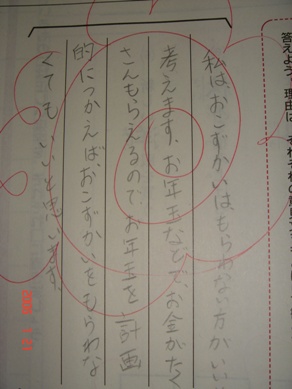 答えよう。理由は、それぞれの
私は、おこずかいはもらわない方がいい
考えます。お年玉などで、お金がたく
さんもらえるので、お年玉を計画
的につかえば、おこずかいをもらわな
くてもいいと思います。